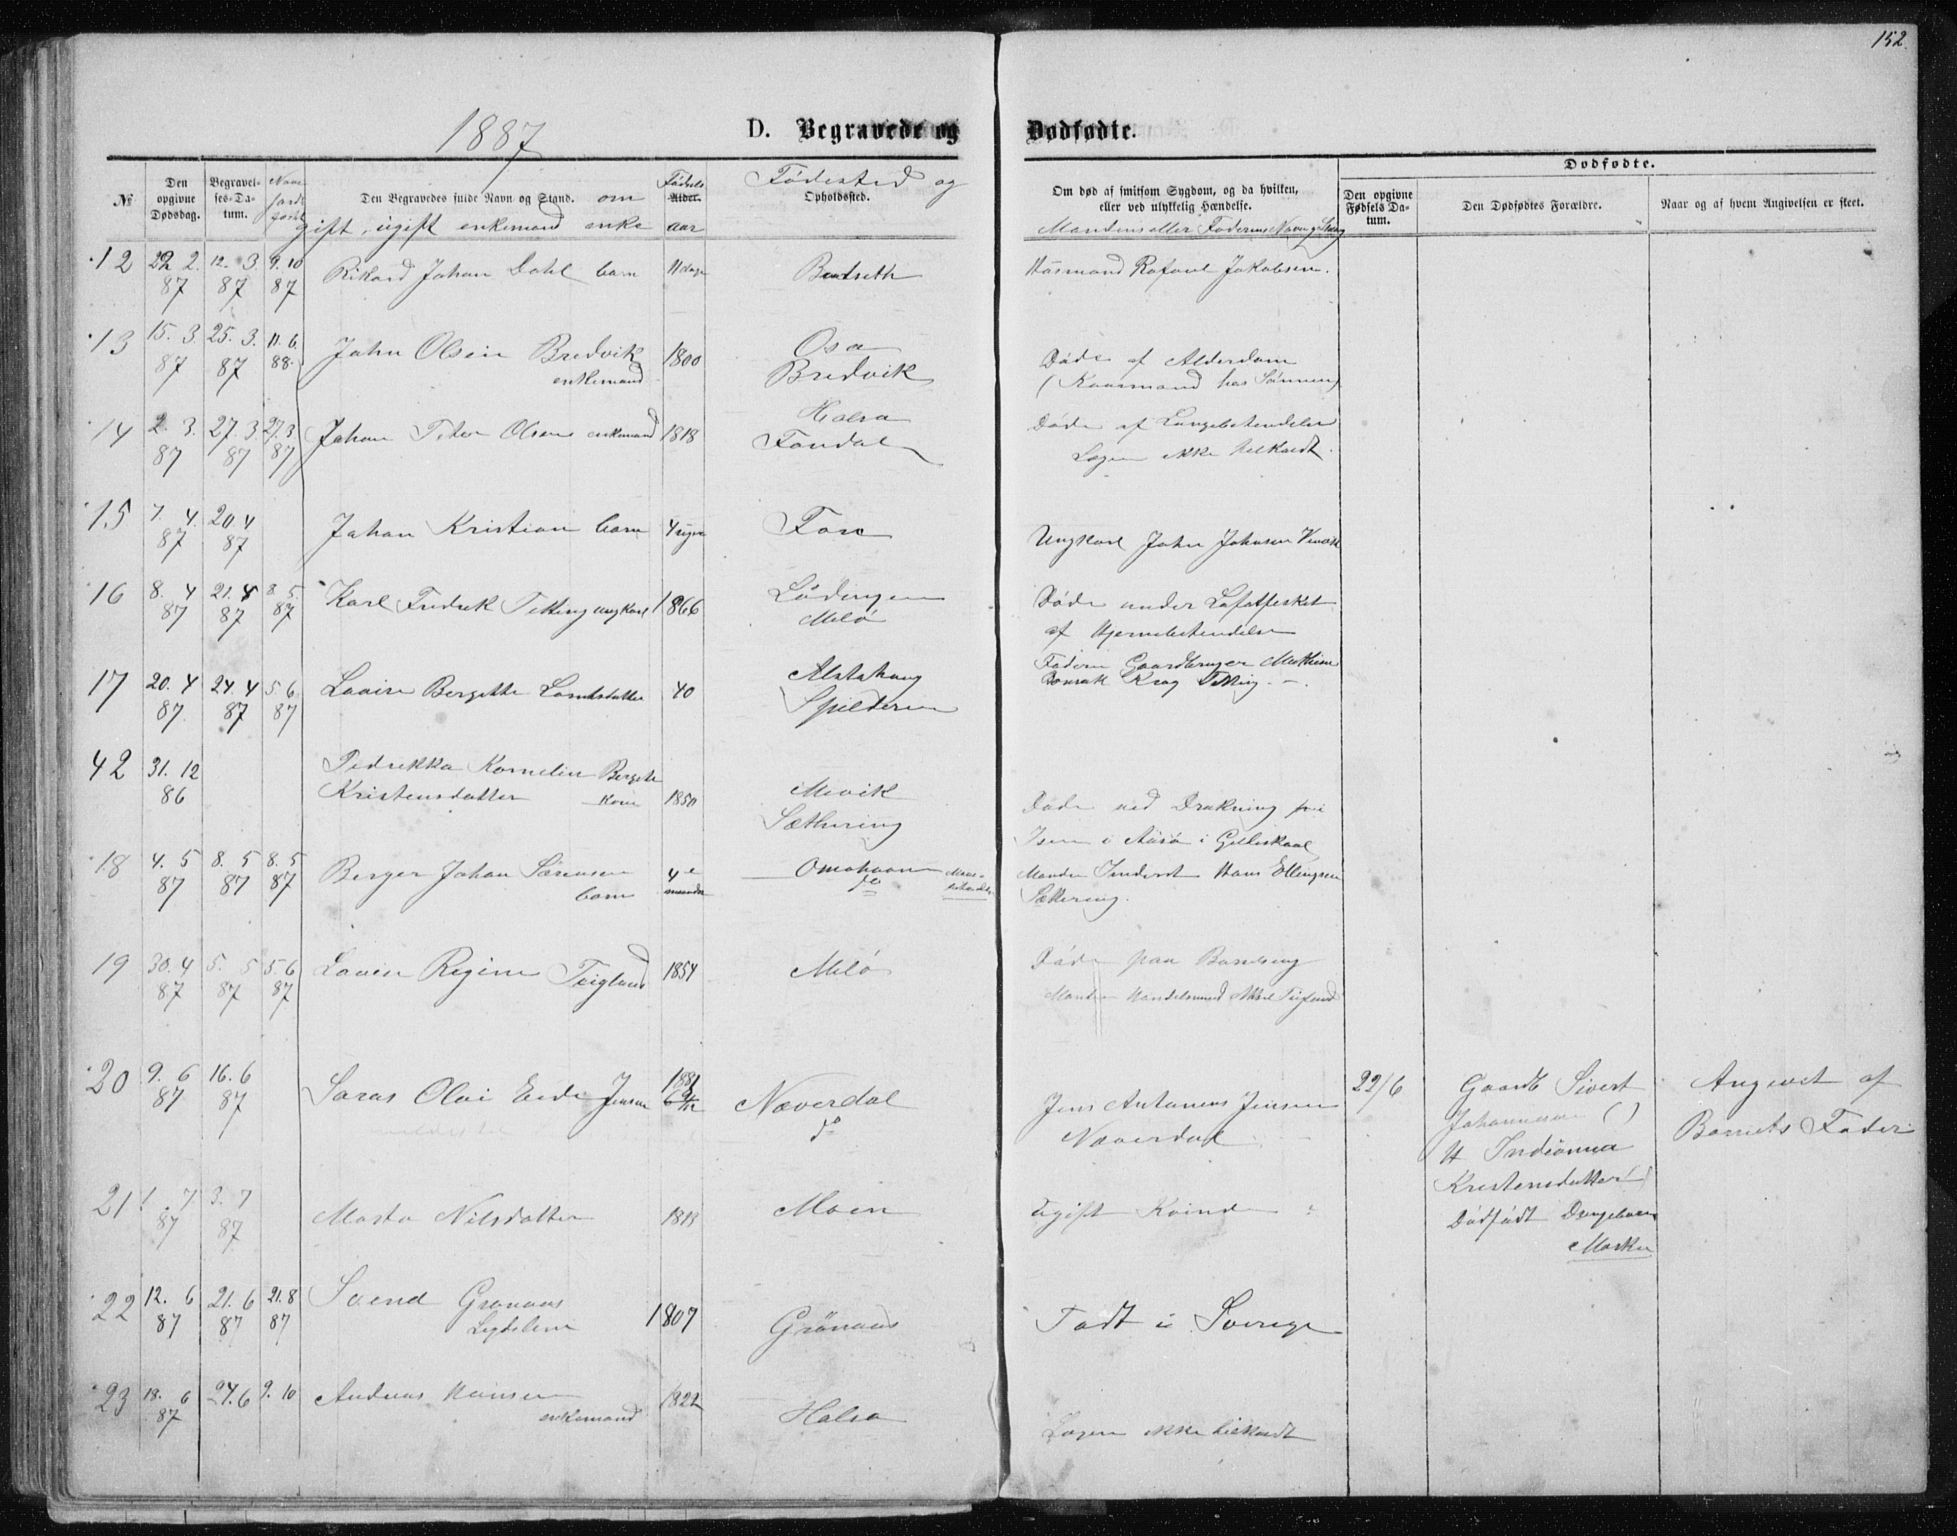 152.
1887
D. Begravede og Dødfødte.
№
Den opgivne Dødsdag.
Begravelses-Datum.
Den Begravedes fulde Navn og Stand. om
gift, ugift enkemand enke
Fødsels
Alder.
aar
Fødested og
Opholdssted.
Om død af smitsom Sygdom, og da hvilken,
eller ved ulykkelig Hændelse.
Mandens eller Faderens Navn og Stilling
Dødfødte.
Den opgivne Fødsels Datum.
Den Dødfødtes Forældre.
Naar og af hvem Angivelsen er skeet.
12 22 2. 87 12. 3 87 9. 10 87 Rikard Johan Dahl barn 11 dage
Husmand Rafael Jakobsen.
13 15. 3. 87 25. 3. 87 11. 6. 88. John Olsen Bredvik 1800 Osa
enkemand Bredvik
Døde af Alderdom
(Kaarmand hos Sønnen)
14 2. 3. 87 27. 3 87 27. 3 87 Johan Peter Olsen enkemand 1818 Halsa
Fondal
Døde af Lungebetændelse
Lægen ikke tilkaldt.
15 7. 4. 87 20. 4 87 Johan Kristian barn 4 uger Fore
Ungkarl John Johnsen
16 8. 4 87 21. 4 87 8. 5. 87 Karl Fredrik Tetting ungkarl 1866 Lødingen
Melø
Døde under Lofotfisket
af Hjernebetændelse
Faderen Gaardbruger
Krog Tetting.
17 20. 4 87. 24. 4 87 5. 6 87 Lovise Bergitte 40 Alstahaug
Spilderen
42 31. 12 86 Pedrikka Kornelia Bergite
Kristensdatter Kone 1850 Mevik
Sæthering
Døde ved Drukning fra
Isen i i Gilleskaal
Manden Inderst Hans Ellingsen
Sætering.
18 4. 5 87 8. 5 87 8. 5 87 Berger Johan Sørensen
barn 4 maander
do
19 30. 4 87 5. 5 87 5. 6 87 Lovise Regine Teigland 1854 Melø
Døde paa Barselseng
Manden Handelsmand
20 9. 6 87 16. 6 87 Jensen 1881 Næverdal
do
Jens Antonius Jensen
Næverdal
22/6 Gaardb Sivert
Johannesen ( )
H Indianna
Kristensdatter
Dødfødt Drengebarn
Angivet af
Barnets Fader
21 1. 7. 87 3. 7 87 Marta Nilsdatter 1813
Ugift Kvinde
22 12. 6 87 21. 6 87 21. 8 87 Svend Grønaas
1807 Grønaas
Født i Sverige
23 18. 6 87 24. 6 9. 10 Andreas Hansen
enkemand 1822 Halsa
Lægen ikke tilkaldt